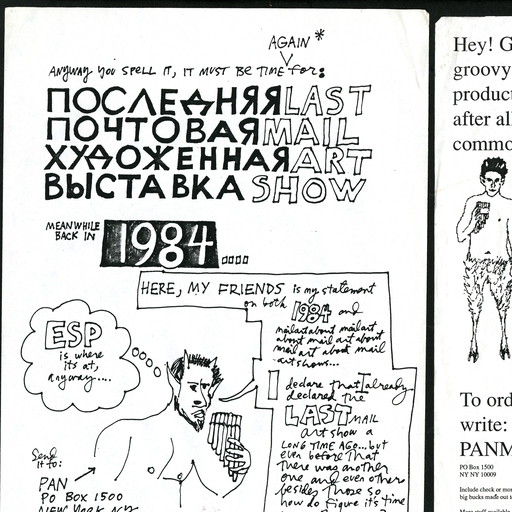 AGAIN *
ANYWAY YOU SPELL IT, IT MUST BE TIME for:
ПОСЛЕДНЯЯ LAST
ПОЧТОВАЯ MAIL
ХУДОЖЕННАЯ ART
ВЫСТАВКА SHOW
MEANWHILE
BACK IN
1984....
HERE, MY FRIENDS is my statement
on both
1984 and
mailartabout mailart
about mail art about
mail art about mail
art shows...
ESP
is where
its at,
anyway....
I declare that I already
declared the
LAST MAIL
art show a
LONG TIME AGO...but
even before that
there was another
one and even other
besides those so
how do figure it's time
Send
it to:
PAN
PO BOX 1500
NEW YORK NY
Hey! G
groovy
product
after all
commo
To ord
write:
PANM
PO Box 1500
NY NY 10009
Include check or mo
big bucks made out t